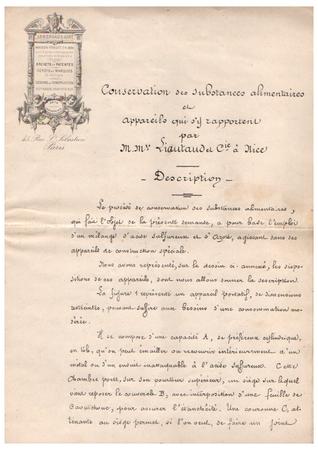 ARMENGAUD AINÉ
BREVETS ET PATENTES
DÉPÔTS DE MARQUES
45, Rue St Sébastien
Paris
Conservation des substances alimentaires
et
appareils qui s'y rapportent
par
M. Mrs Liautaud & Cie à Nice
- Description -
Le procédé de conservation des substances alimentaires,
qui fait l'objet de la présente demande, a pour base l'emploi
d'un mélange d'acide sulfureux et d'Azote, agissant dans des
appareils de construction spéciale.
Nous avons représenté, sur le dessin ci-annexé, les dispo-
sitions de ces appareils, dont nous allons donner la description.
La figure 1 représente un appareil portatif, de dimensions
restreintes, pouvant suffire aux besoins d'une consommation mo-
dérée.
Il se compose d'une capacité A, de préférence cylindrique,
en tôle, qu'on peut émailler ou recouvrir intérieurement d'un
métal ou d'un enduit inattaquable à l'acide sulfureux. Cette
Chambre porte, sur son pourtour supérieur, un siège sur lequel
vient reposer le couvercle B, avec interposition d'une feuille de
Caoutchouc, pour assurer l'étanchéité. Une couronne C, at-
tenante au siège permet, si l'on veut, de faire un joint